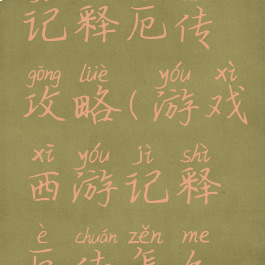 记释厄传
gōng lüè yóu xì
攻略(游戏
xī yóu jì shì
西游记释
è chuán zěn me
厄传怎么